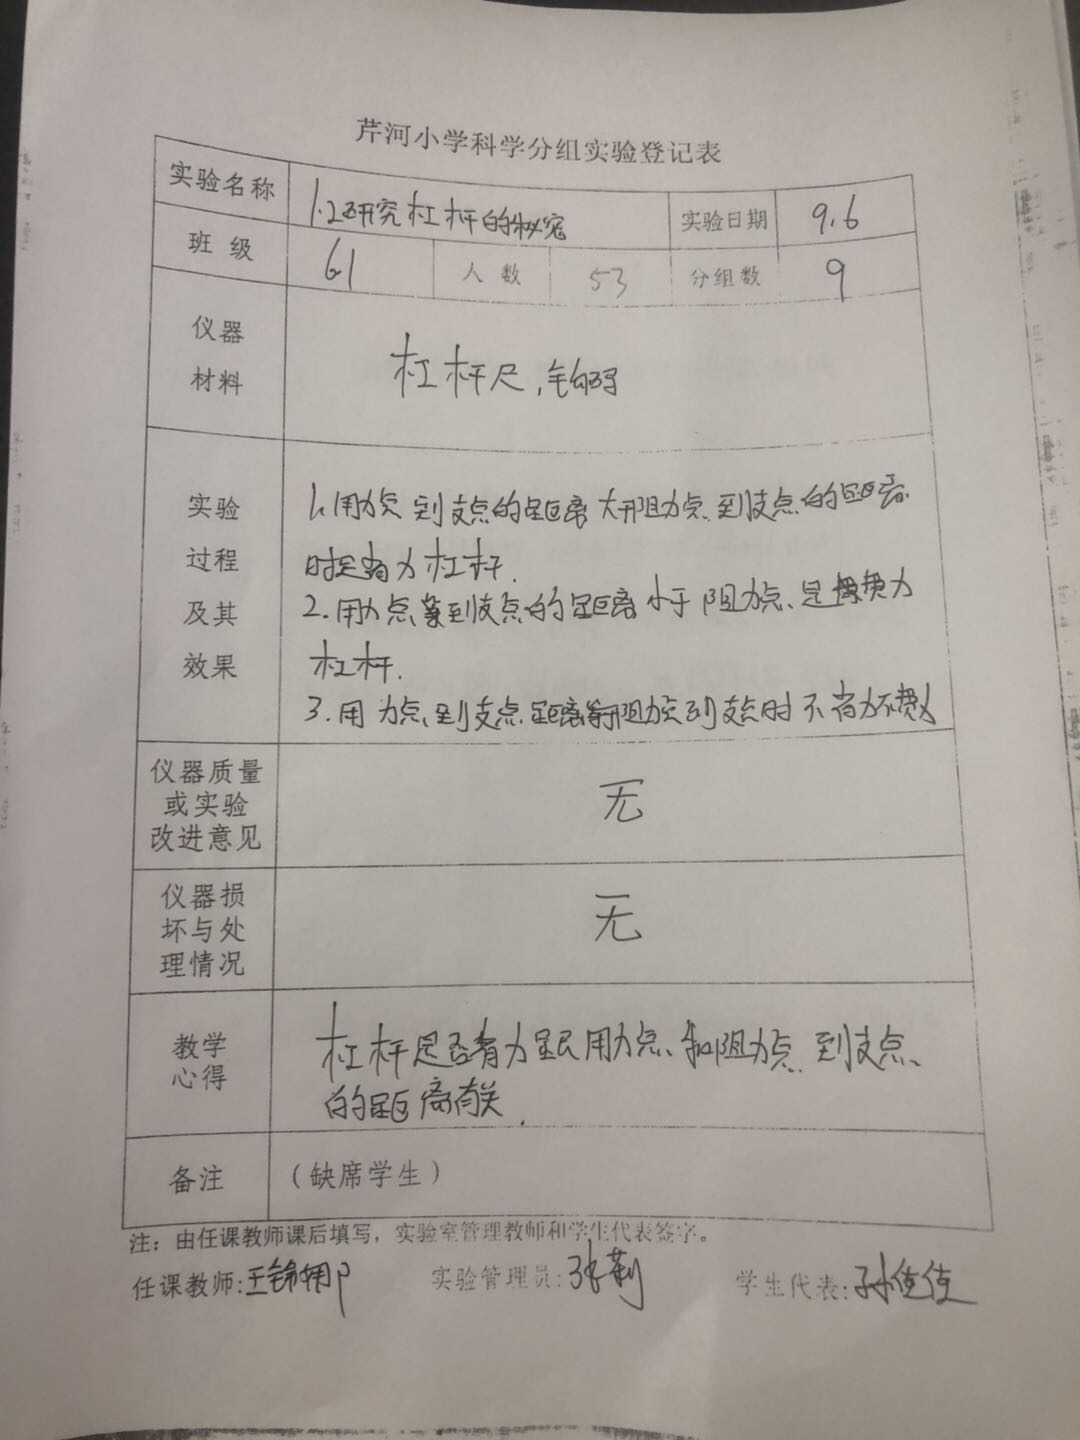 芹河小学科学分组实验登记表
实验名称 1.2研究杠杆的秘密 实验日期 9.6
班级 61 人数 53 分组数 9
仪器
材料
杠杆尺,钩码
实验
过程
及其
效果
1.用力点到支点的距离大于阻力点到支点的距离
时是省力杠杆.
2.用力点到支点的距离小于阻力点、是费力
杠杆.
3.用力点到支点距离等于阻力点到支点时不省力不费力
仪器质量
或实验
改进意见
无
仪器损
坏与处
理情况
无
教学
心得
杠杆是否省力是跟用力点、和阻力点到支点、
的距离有关.
备注 (缺席学生)
注:由任课教师课后填写,实验室管理教师和学生代表签字。
任课教师:王锦 实验管理员:张莉 学生代表:孙佳佳